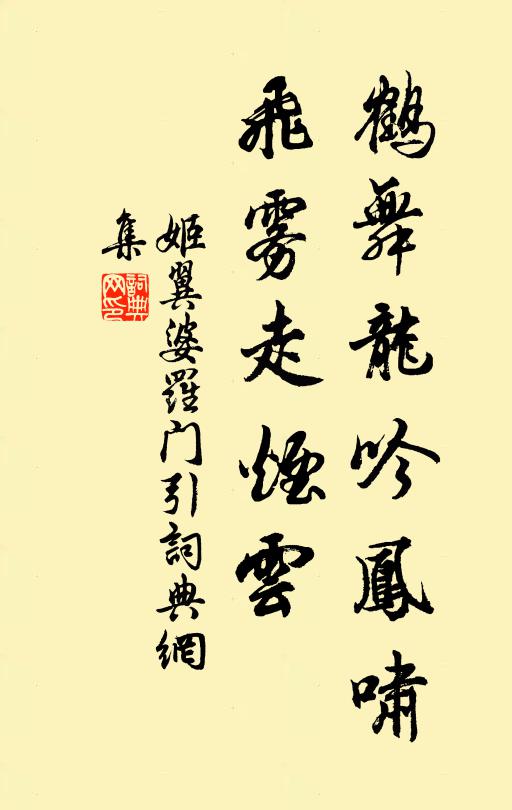 鶴舞龍吟鳳嘯
飛雾走煙雲
姬翼婆羅门引詞典網
集
詞典
网印